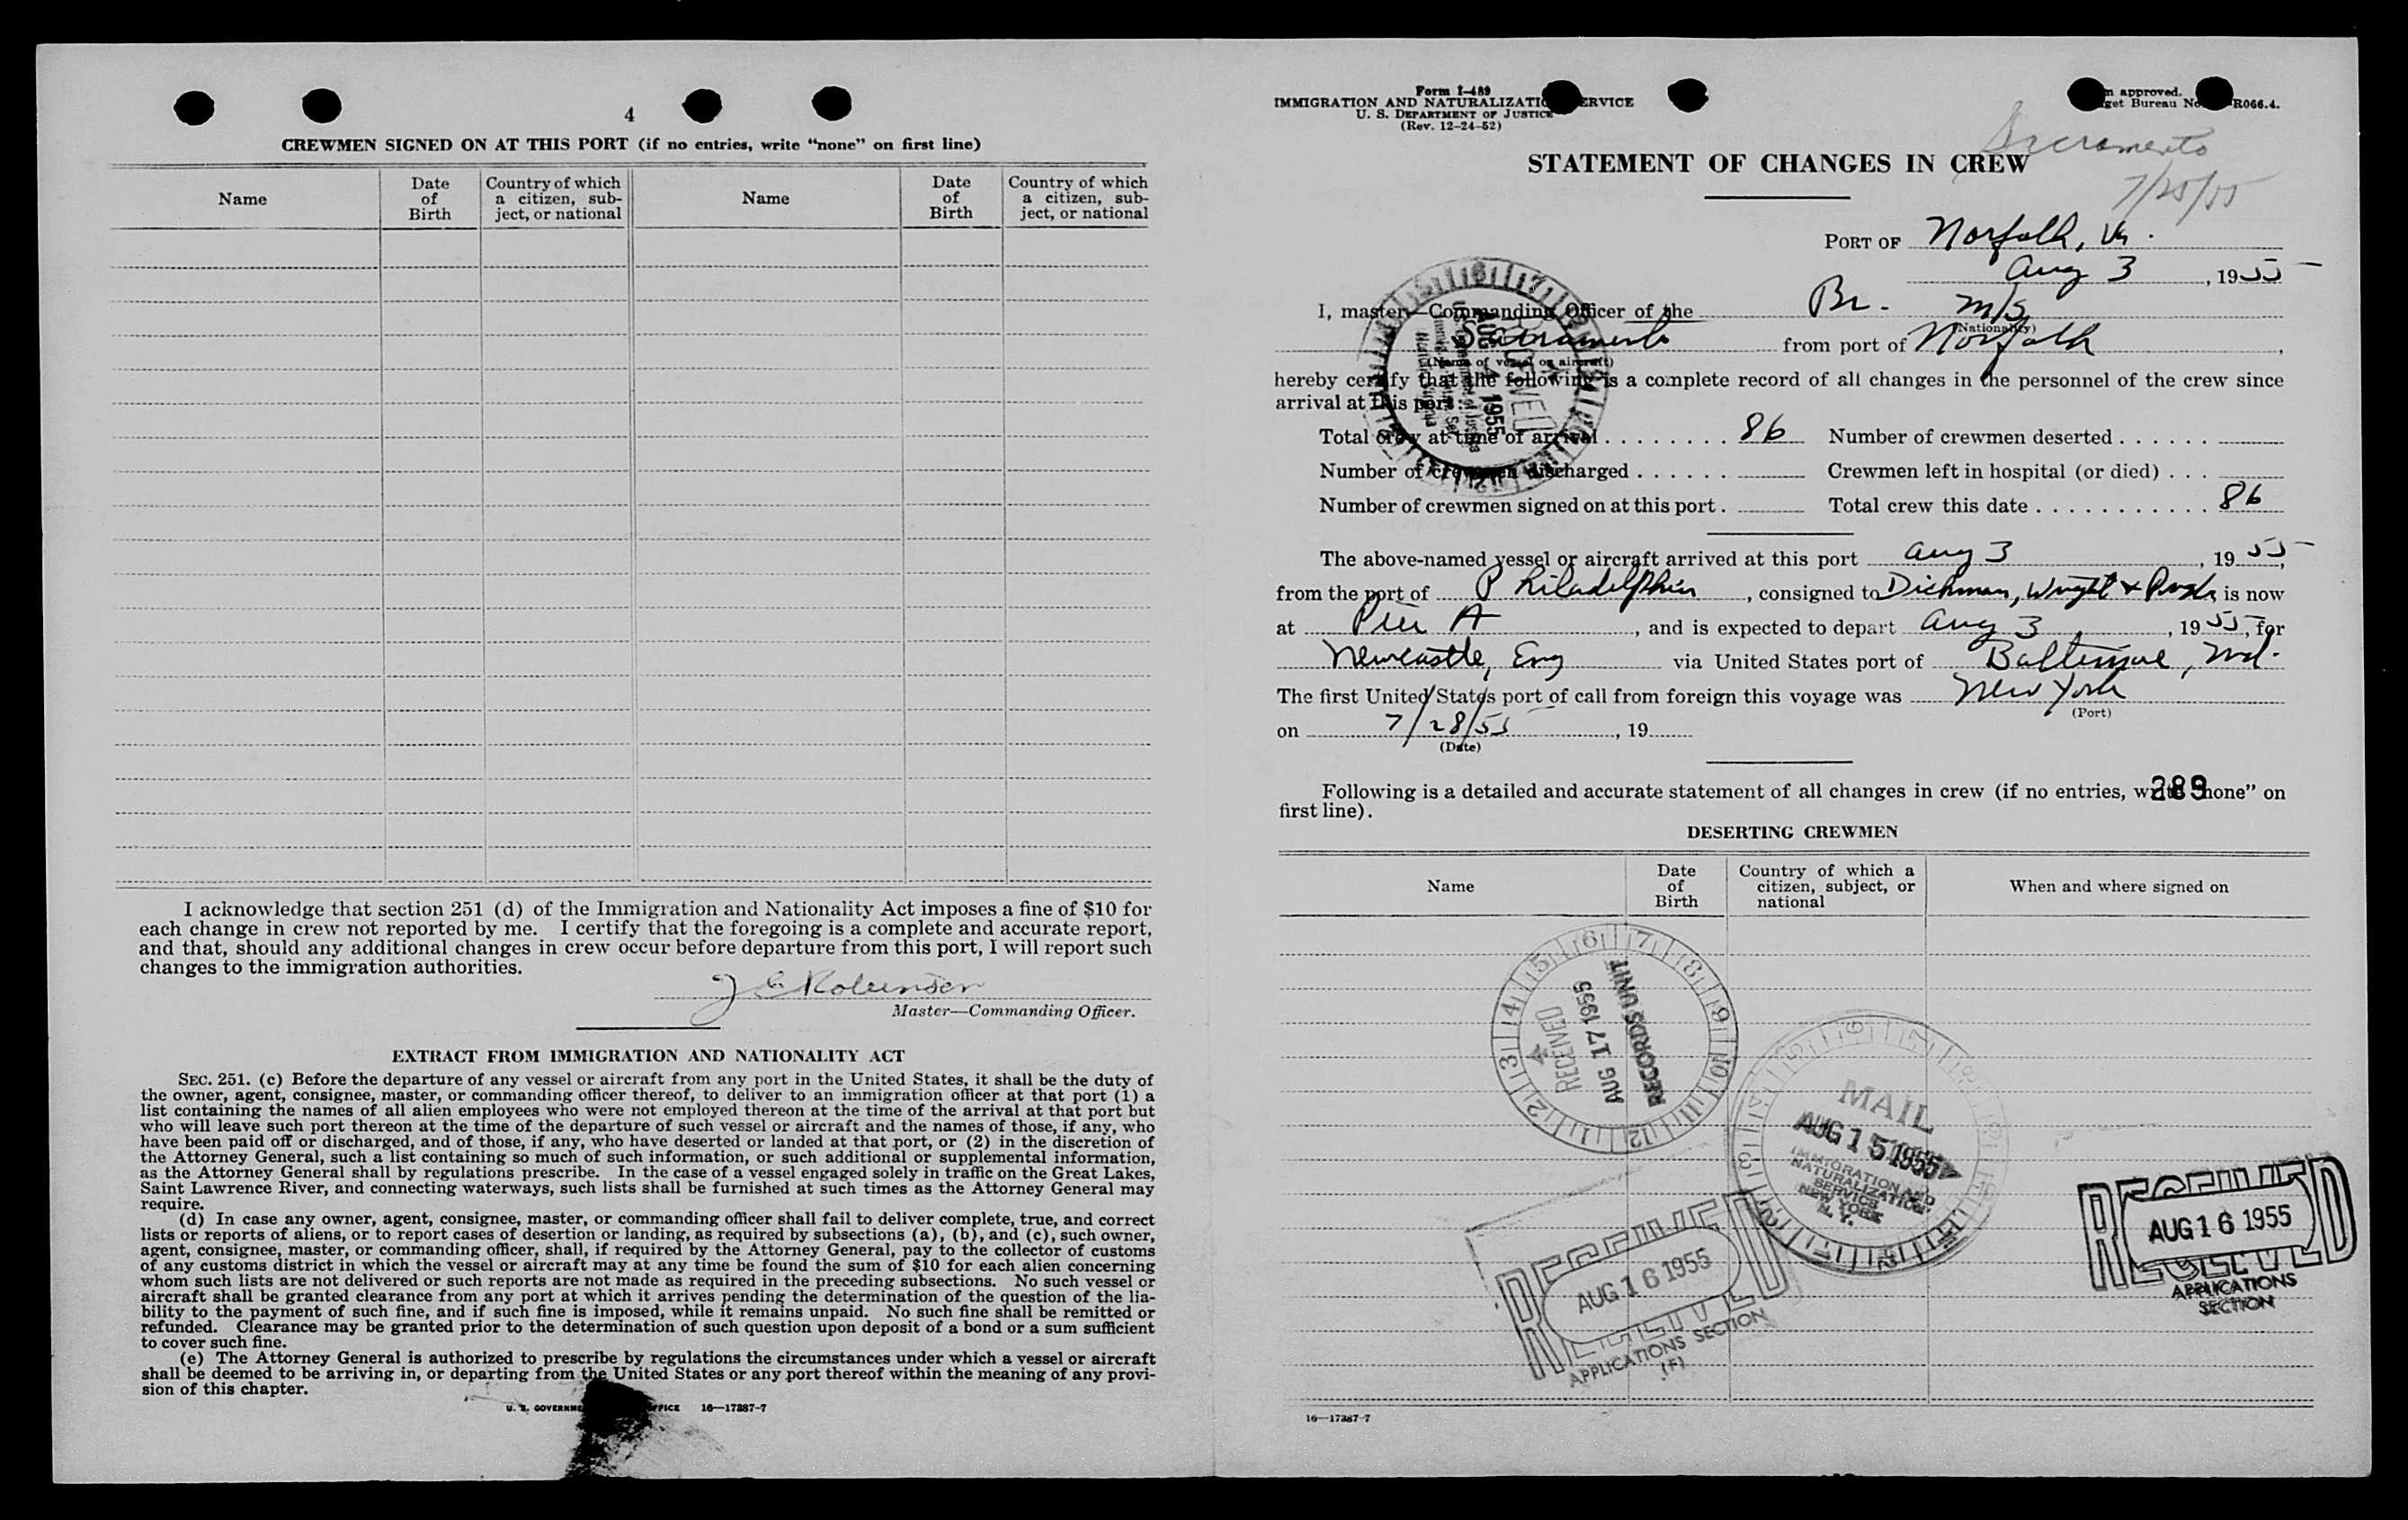 4
CREWMEN SIGNED ON AT THIS PORT (if no entries, write "none" on first line)
Name
Date of Birth
Country of which a citizen, subject, or national
Name
Date of Birth
Country of which a citizen, subject, or national
I acknowledge that section 251 (d) of the Immigration and Nationality Act imposes a fine of $10 for
each change in crew not reported by me. I certify that the foregoing is a complete and accurate report,
and that, should any additional changes in crew occur before departure from this port, I will report such
changes to the immigration authorities.
J C Robinson
Master—Commanding Officer.
EXTRACT FROM IMMIGRATION AND NATIONALITY ACT
SEC. 251. (c) Before the departure of any vessel or aircraft from any port in the United States, it shall be the duty of
the owner, agent, consignee, master, or commanding officer thereof, to deliver to an immigration officer at that port (1) a
list containing the names of all alien employees who were not employed thereon at the time of the arrival at that port but
who will leave such port thereon at the time of the departure of such vessel or aircraft and the names of those, if any, who
have been paid off or discharged, and of those, if any, who have deserted or landed at that port, or (2) in the discretion of
the Attorney General, such a list containing so much of such information, or such additional or supplemental information,
as the Attorney General shall by regulations prescribe. In the case of a vessel engaged solely in traffic on the Great Lakes,
Saint Lawrence River, and connecting waterways, such lists shall be furnished at such times as the Attorney General may
require.
(d) In case any owner, agent, consignee, master, or commanding officer shall fail to deliver complete, true, and correct
lists or reports of aliens, or to report cases of desertion or landing, as required by subsections (a), (b), and (c), such owner,
agent, consignee, master, or commanding officer, shall, if required by the Attorney General, pay to the collector of customs
of any customs district in which the vessel or aircraft may at any time be found the sum of $10 for each alien concerning
whom such lists are not delivered or such reports are not made as required in the preceding subsections. No such vessel or
aircraft shall be granted clearance from any port at which it arrives pending the determination of the question of the lia-
bility to the payment of such fine, and if such fine is imposed, while it remains unpaid. No such fine shall be remitted or
refunded. Clearance may be granted prior to the determination of such question upon deposit of a bond or a sum sufficient
to cover such fine.
(e) The Attorney General is authorized to prescribe by regulations the circumstances under which a vessel or aircraft
shall be deemed to be arriving in, or departing from the United States or any port thereof within the meaning of any provi-
sion of this chapter.
U. S. 16—17387-7
Form I-489
IMMIGRATION AND NATURALIZATION SERVICE
U. S. DEPARTMENT OF JUSTICE
(Rev. 12-24-52)
approved.
Bureau No. R066.4.
Sacramento
7/25/55
STATEMENT OF CHANGES IN CREW
PORT OF Norfolk, Va.
Aug 3, 1955
I, master—Commanding Officer of the Br. m/s
(Nationality)
Sacramento from port of Norfolk,
(Name of vessel or aircraft)
hereby certify that the following is a complete record of all changes in the personnel of the crew since
arrival at this port:
Total crew at time of arrival . . . . . . . . 86 Number of crewmen deserted . . . . . .
Number of crewmen discharged . . . . . . Crewmen left in hospital (or died) . . .
Number of crewmen signed on at this port . Total crew this date . . . . . . . . . . . 86
The above-named vessel or aircraft arrived at this port Aug 3, 1955,
from the port of Philadelphia, consigned to Dichman, Wright & Pugh is now
at Pier A, and is expected to depart Aug 3, 1955, for
Newcastle, Eng via United States port of Baltimore, Md.
The first United States port of call from foreign this voyage was New York
(Port)
on 7/28/55, 19
(Date)
Following is a detailed and accurate statement of all changes in crew (if no entries, write "none" on
first line).
289
DESERTING CREWMEN
Name
Date of Birth
Country of which a citizen, subject, or national
When and where signed on
RECEIVED
AUG 17 1955
RECORDS UNIT
MAIL
AUG 15 1955
IMMIGRATION AND
NATURALIZATION
SERVICE
NEW YORK
N. Y.
RECEIVED
AUG 16 1955
RECEIVED
APPLICATIONS SECTION
(F)
RECEIVED
AUG 16 1955
RECEIVED
APPLICATIONS
SECTION
16—17387-7